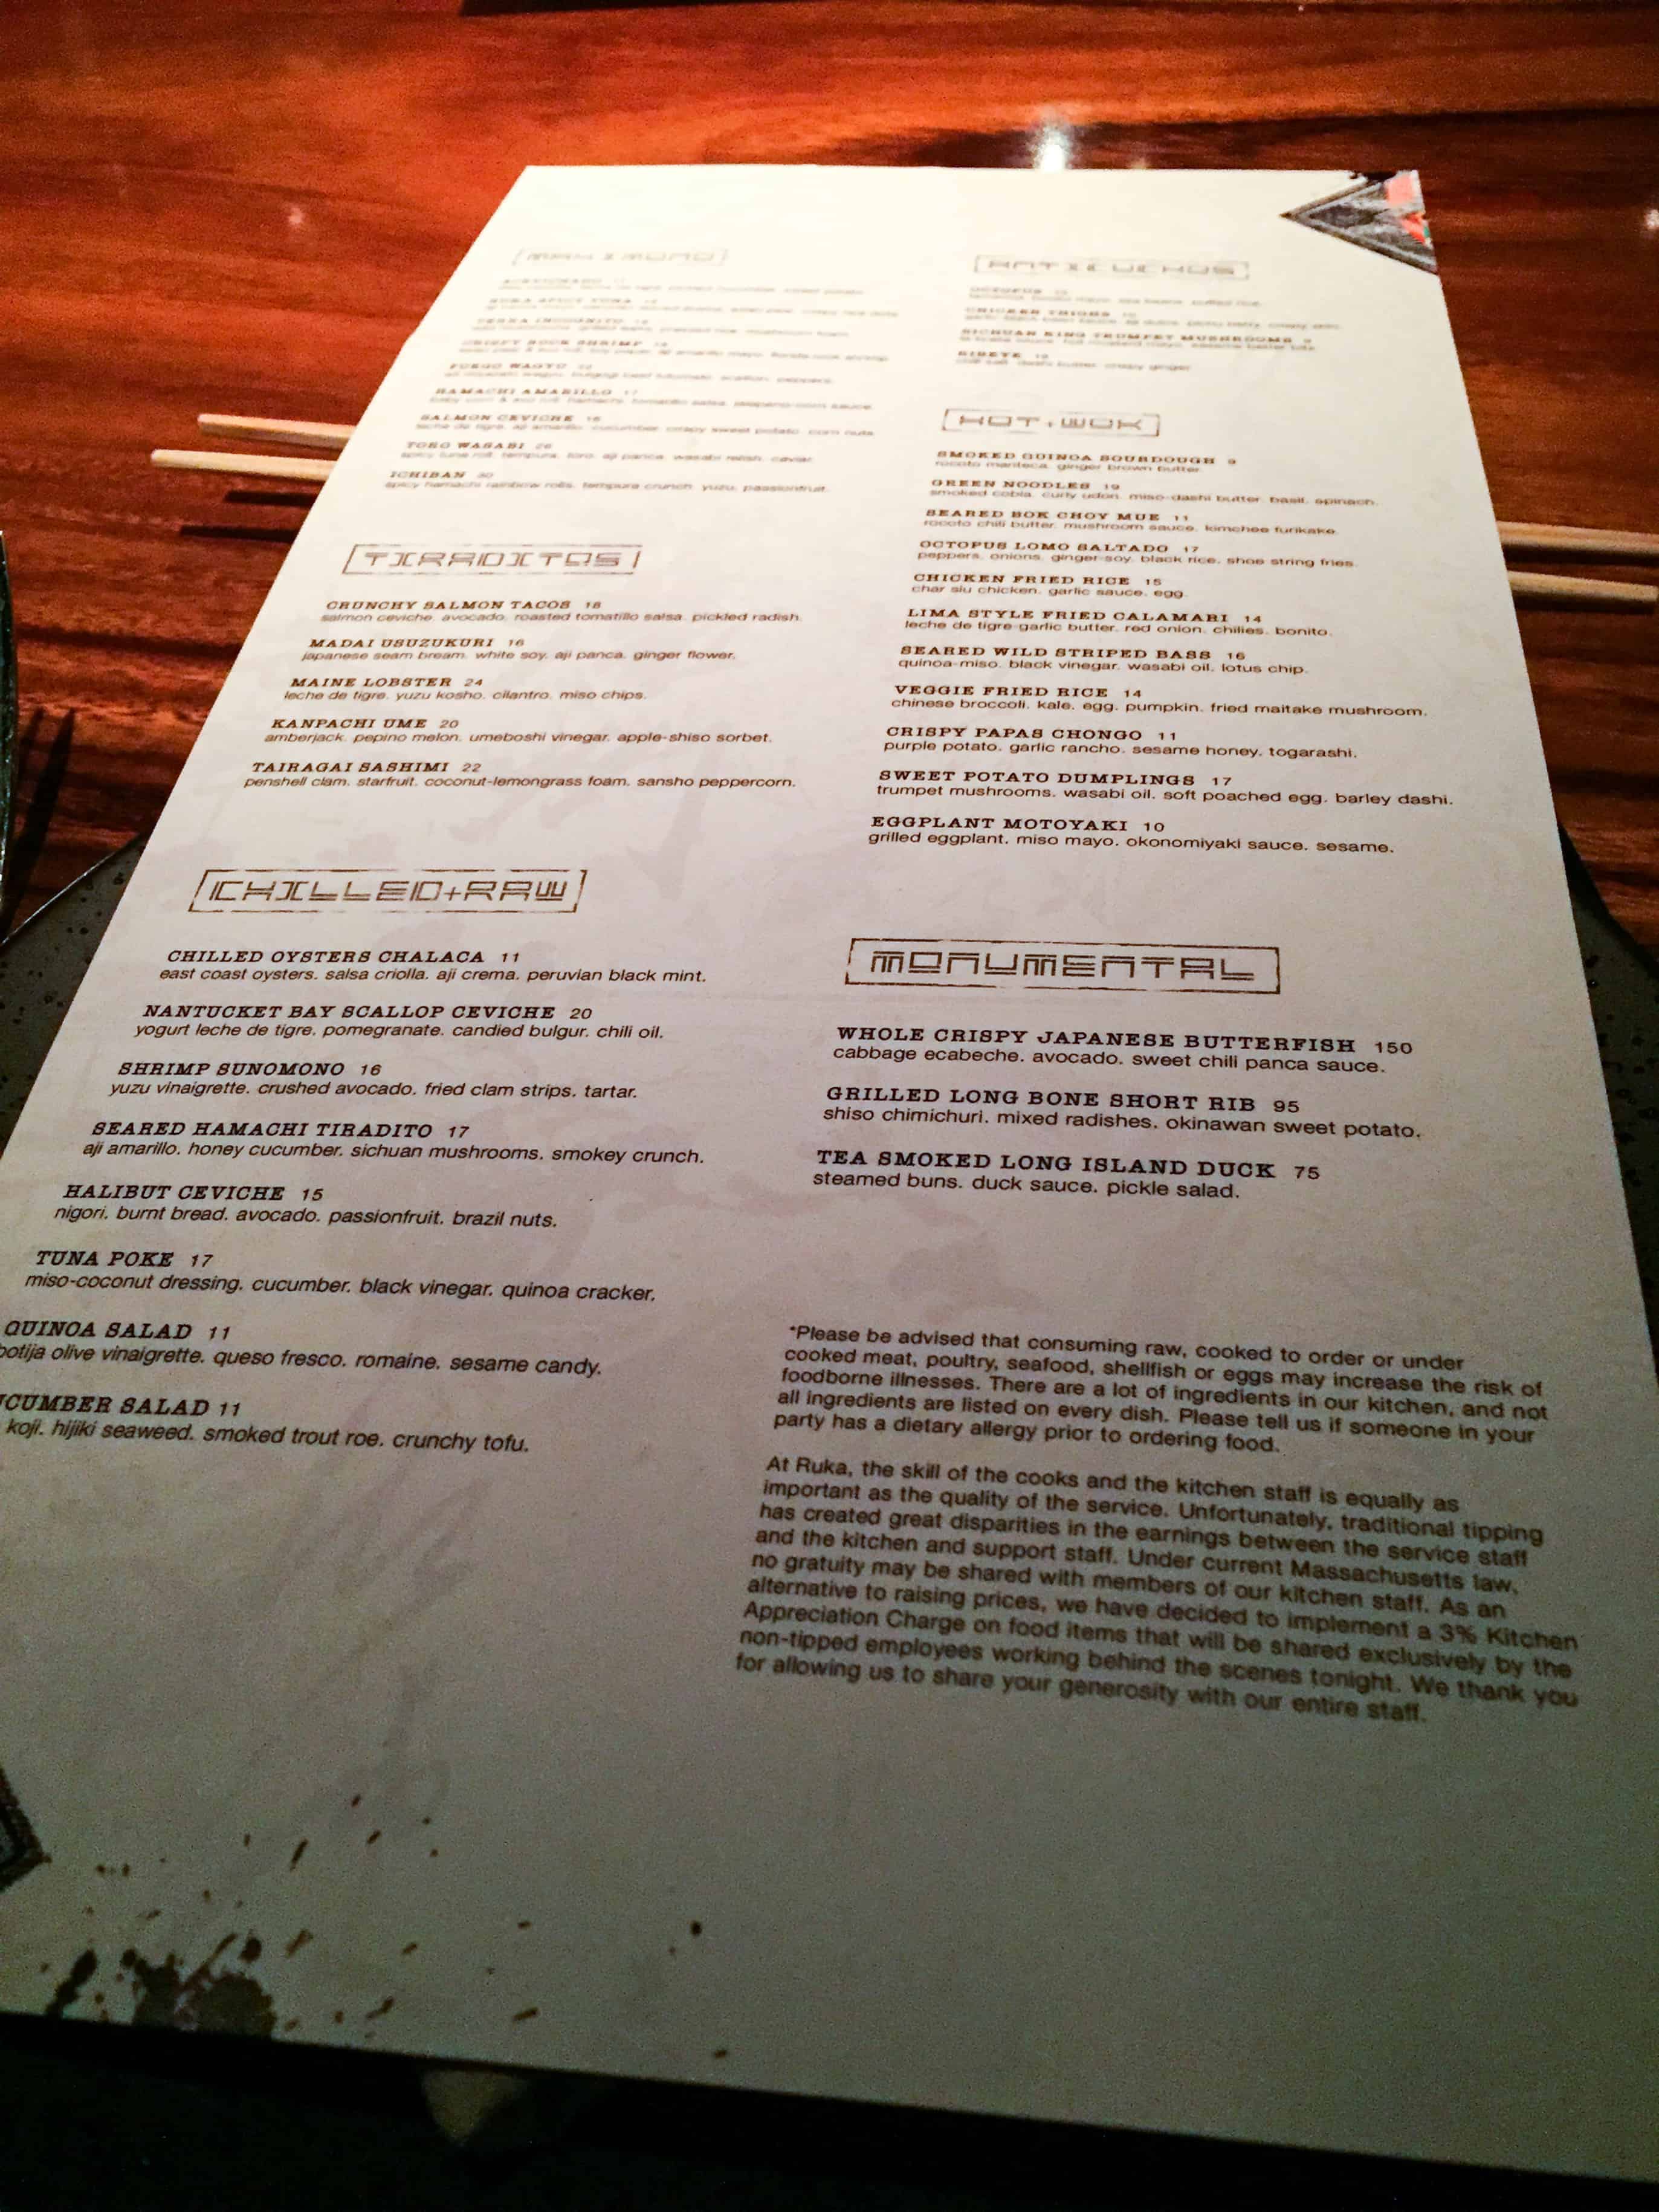 [MAKIMONO]
TERRA INCOGNITO 14
CRISPY ROCK SHRIMP 18
FUEGO WAGYU 22
HAMACHI AMARILLO 17
SALMON CEVICHE 16
leche de tigre. aji amarillo. cucumber. crispy sweet potato. corn nuts.
TORO WASABI 26
spicy tuna roll. tempura. toro. aji panca. wasabi relish. caviar.
ICHIBAN 30
spicy hamachi rainbow rolls. tempura crunch. yuzu. passionfruit.
[TIRADITOS]
CRUNCHY SALMON TACOS 18
salmon ceviche. avocado. roasted tomatillo salsa. pickled radish.
MADAI USUZUKURI 16
japanese seam bream. white soy. aji panca. ginger flower.
MAINE LOBSTER 24
leche de tigre. yuzu kosho. cilantro. miso chips.
KANPACHI UME 20
amberjack. pepino melon. umeboshi vinegar. apple-shiso sorbet.
TAIRAGAI SASHIMI 22
penshell clam. starfruit. coconut-lemongrass foam. sansho peppercorn.
[CHILLED+RAW]
CHILLED OYSTERS CHALACA 11
east coast oysters. salsa criolla. aji crema. peruvian black mint.
NANTUCKET BAY SCALLOP CEVICHE 20
yogurt leche de tigre. pomegranate. candied bulgur. chili oil.
SHRIMP SUNOMONO 16
yuzu vinaigrette. crushed avocado. fried clam strips. tartar.
SEARED HAMACHI TIRADITO 17
aji amarillo. honey cucumber. sichuan mushrooms. smokey crunch.
HALIBUT CEVICHE 15
nigori. burnt bread. avocado. passionfruit. brazil nuts.
TUNA POKE 17
miso-coconut dressing. cucumber. black vinegar. quinoa cracker.
QUINOA SALAD 11
botija olive vinaigrette. queso fresco. romaine. sesame candy.
UCUMBER SALAD 11
koji. hijiki seaweed. smoked trout roe. crunchy tofu.
[ANTICUCHOS]
OCTOPUS
CHICKEN THIGHS
SICHUAN KING TRUMPET MUSHROOMS 9
RIBEYE
[HOT+WOK]
SMOKED QUINOA SOURDOUGH 9
rocoto manteca. ginger brown butter.
GREEN NOODLES 19
smoked cobia. curly udon. miso-dashi butter. basil. spinach.
SEARED BOK CHOY MUE 11
rocoto chili butter. mushroom sauce. kimchee furikake.
OCTOPUS LOMO SALTADO 17
peppers. onions. ginger-soy. black rice. shoe string fries.
CHICKEN FRIED RICE 15
char siu chicken. garlic sauce. egg.
LIMA STYLE FRIED CALAMARI 14
leche de tigre-garlic butter. red onion. chilies. bonito.
SEARED WILD STRIPED BASS 16
quinoa-miso. black vinegar. wasabi oil. lotus chip.
VEGGIE FRIED RICE 14
chinese broccoli. kale. egg. pumpkin. fried maitake mushroom.
CRISPY PAPAS CHONGO 11
purple potato. garlic rancho. sesame honey. togarashi.
SWEET POTATO DUMPLINGS 17
trumpet mushrooms. wasabi oil. soft poached egg. barley dashi.
EGGPLANT MOTOYAKI 10
grilled eggplant. miso mayo. okonomiyaki sauce. sesame.
[MONUMENTAL]
WHOLE CRISPY JAPANESE BUTTERFISH 150
cabbage ecabeche. avocado. sweet chili panca sauce.
GRILLED LONG BONE SHORT RIB 95
shiso chimichuri. mixed radishes. okinawan sweet potato.
TEA SMOKED LONG ISLAND DUCK 75
steamed buns. duck sauce. pickle salad.
*Please be advised that consuming raw, cooked to order or under
cooked meat, poultry, seafood, shellfish or eggs may increase the risk of
foodborne illnesses. There are a lot of ingredients in our kitchen, and not
all ingredients are listed on every dish. Please tell us if someone in your
party has a dietary allergy prior to ordering food.
At Ruka, the skill of the cooks and the kitchen staff is equally as
important as the quality of the service. Unfortunately, traditional tipping
has created great disparities in the earnings between the service staff
and the kitchen and support staff. Under current Massachusetts law,
no gratuity may be shared with members of our kitchen staff. As an
alternative to raising prices, we have decided to implement a 3% Kitchen
Appreciation Charge on food items that will be shared exclusively by the
non-tipped employees working behind the scenes tonight. We thank you
for allowing us to share your generosity with our entire staff.